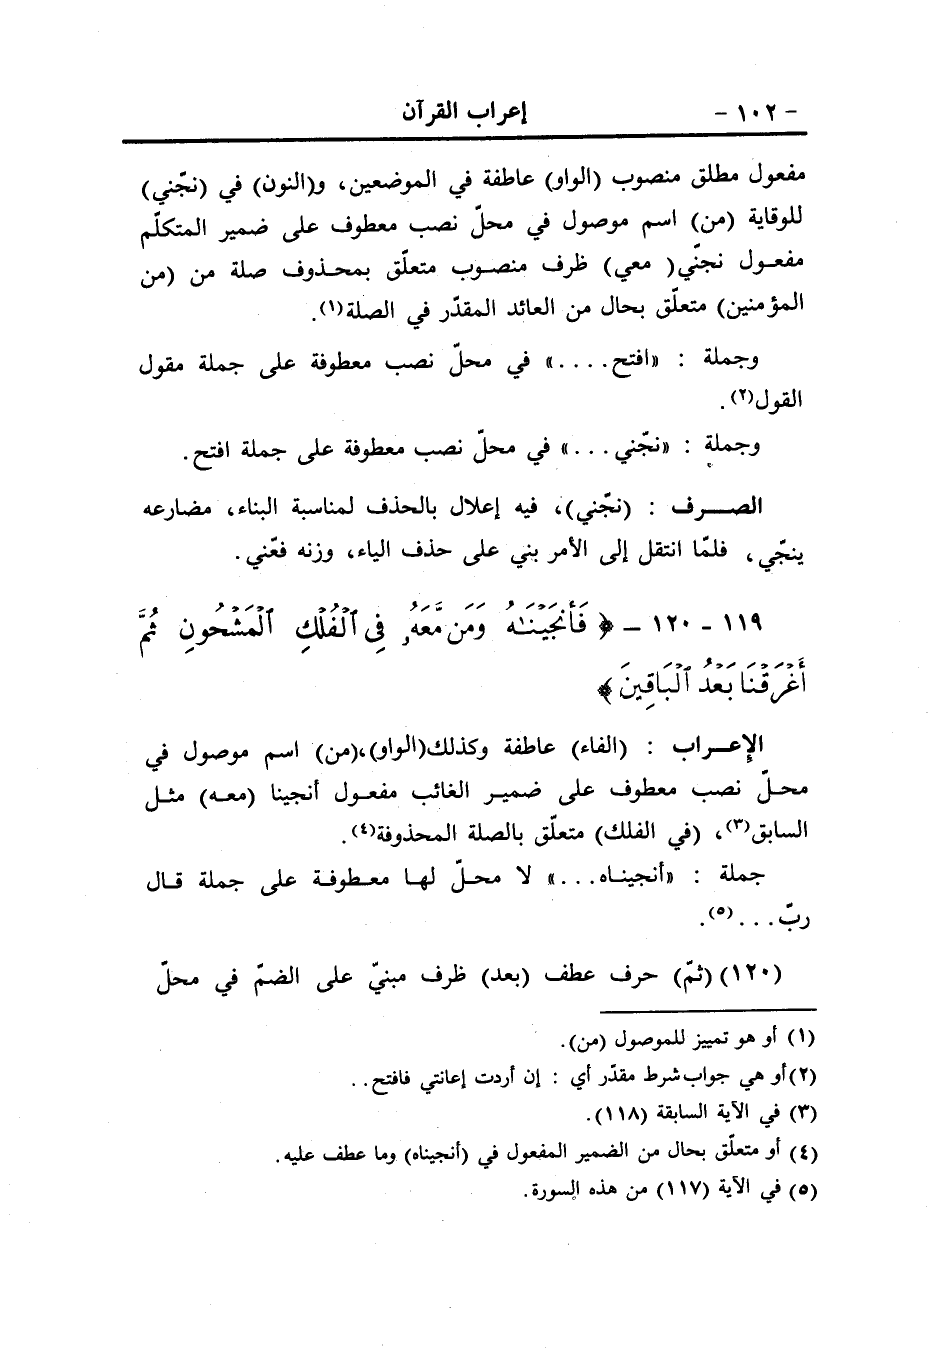 - ١٠٢ - إعراب القرآن
مفعول مطلق منصوب (الواو) عاطفة في الموضعين، و(النون) في (نجّني)
للوقاية (من) اسم موصول في محلّ نصب معطوف على ضمير المتكلّم
مفعول نجنّي( معي) ظرف منصوب متعلّق بمحذوف صلة من (من
المؤمنين) متعلّق بحال من العائد المقدّر في الصلة(١).
وجملة : «افتح....» في محلّ نصب معطوفة على جملة مقول
القول(٢).
وجملة : «نجّني...» في محلّ نصب معطوفة على جملة افتح.
الصرف : (نجّني)، فيه إعلال بالحذف لمناسبة البناء، مضارعه
ينجّي، فلمّا انتقل إلى الأمر بني على حذف الياء، وزنه فعّني.
١١٩ - ١٢٠ - ﴿ فَأَنجَيْنَٰهُ وَمَن مَّعَهُۥ فِى ٱلْفُلْكِ ٱلْمَشْحُونِ ثُمَّ
أَغْرَقْنَا بَعْدُ ٱلْبَاقِينَ ﴾
الإعراب : (الفاء) عاطفة وكذلك(الواو)،(من) اسم موصول في
محلّ نصب معطوف على ضمير الغائب مفعول أنجينا (معه) مثل
السابق(٣)، (في الفلك) متعلّق بالصلة المحذوفة(٤).
جملة : «أنجيناه...» لا محلّ لها معطوفة على جملة قال
ربّ...(٥).
(١٢٠) (ثمّ) حرف عطف (بعد) ظرف مبنيّ على الضمّ في محلّ
(١) أو هو تمييز للموصول (من).
(٢)أو هي جواب شرط مقدّر أي : إن أردت إعانتي فافتح..
(٣) في الآية السابقة (١١٨).
(٤) أو متعلّق بحال من الضمير المفعول في (أنجيناه) وما عطف عليه.
(٥) في الآية (١١٧) من هذه السورة.